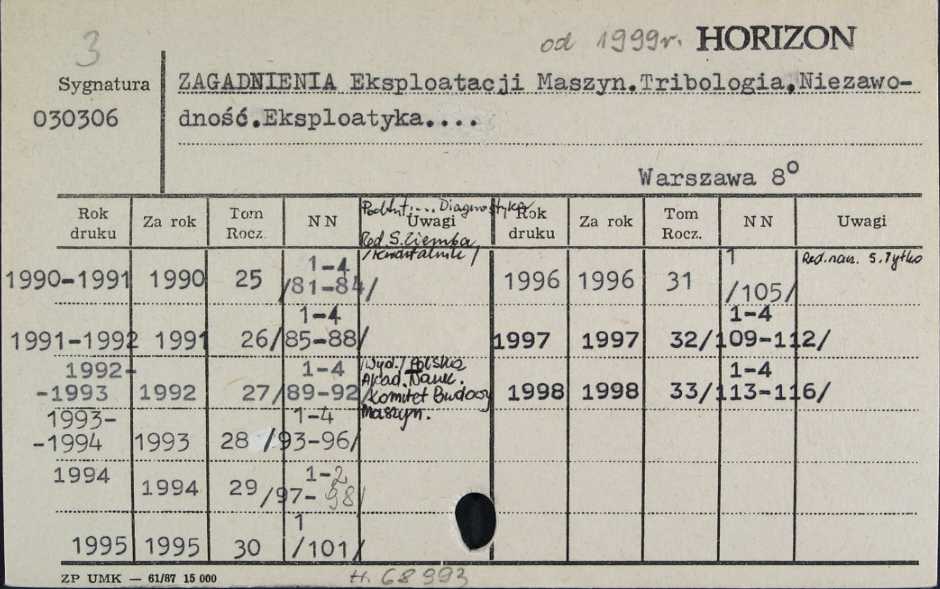 3
od 1999r. HORIZON
Sygnatura
030306
ZAGADNIENIA Eksploatacji Maszyn.Tribologia.Niezawo-
dność.Eksploatyka....
Warszawa 8°
Rok druku Za rok Tom Rocz. NN Uwagi Rok druku Za rok Tom Rocz. NN Uwagi
Podtyt.... Diagnostyka
Red. S. Ziemba
/kwartalnik/
1990-1991 1990 25 1-4 /81-84/
1996 1996 31 1 /105/ Red. nan. S. Pytko
1991-1992 1991 26 1-4 /85-88/
1997 1997 32 1-4 /109-112/
1992-1993 1992 27 1-4 /89-92/
/Wyd./ Polska
Akad. Nauk.
Komitet Budowy
Maszyn.
1998 1998 33 1-4 /113-116/
1993-
-1994 1993 28 1-4 /93-96/
1994 1994 29 1-2 /97-98/
1995 1995 30 1 /101/
ZP UMK — 61/87 15 000
H. 68 993